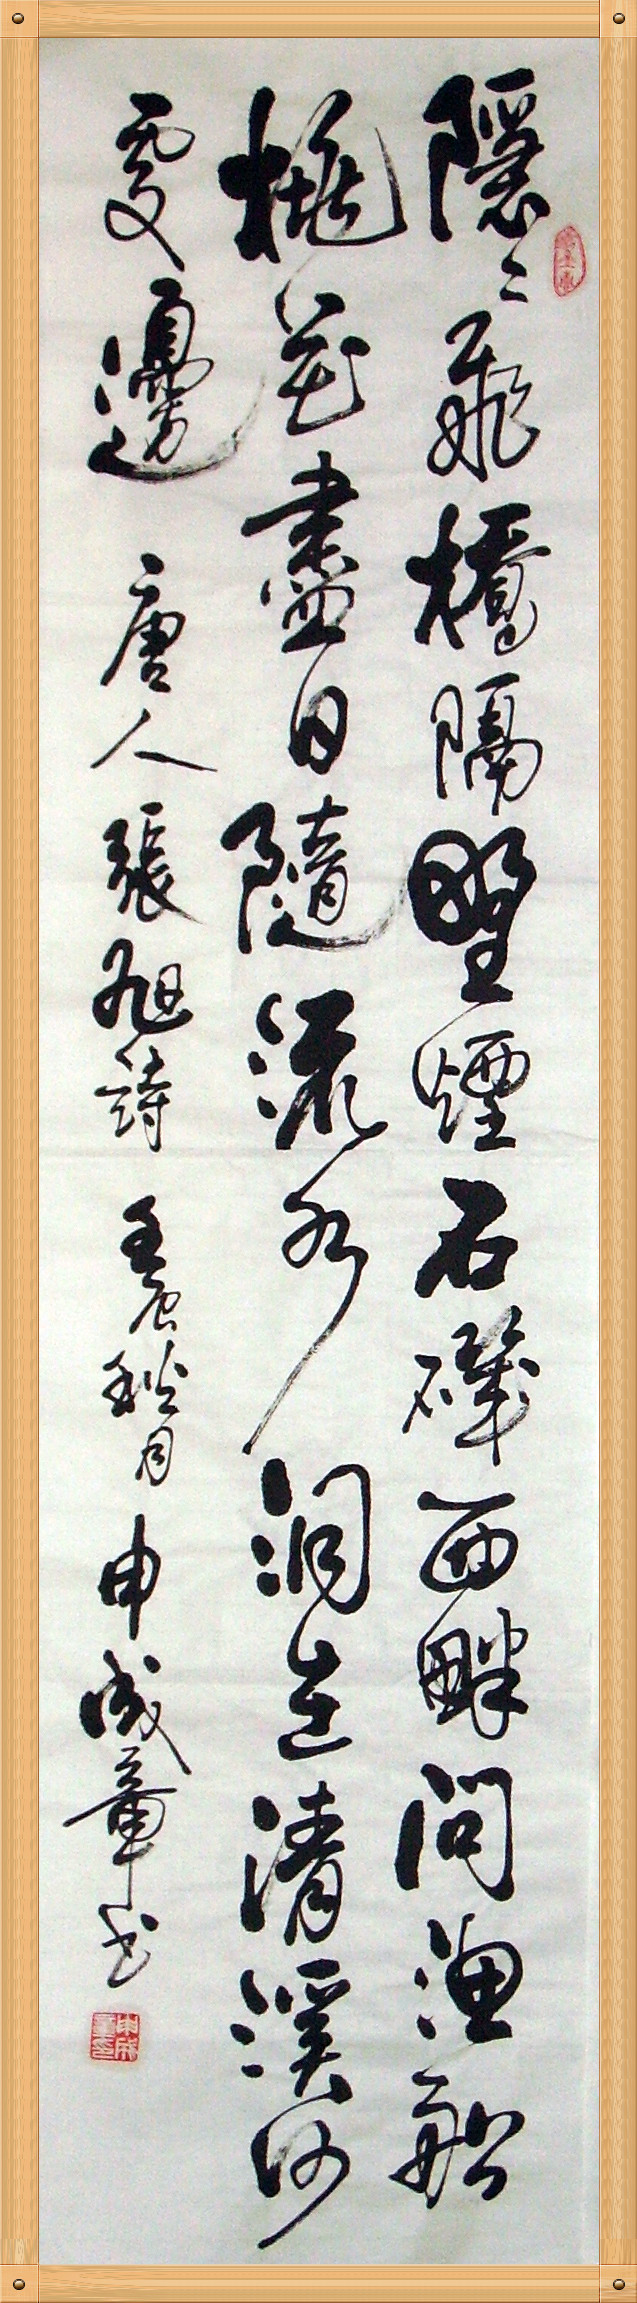 隱〻飛橋隔野煙石磯西畔問漁船
桃花盡日隨流水洞在清溪何
處邊 唐人張旭詩 壬辰秋月 申成章书